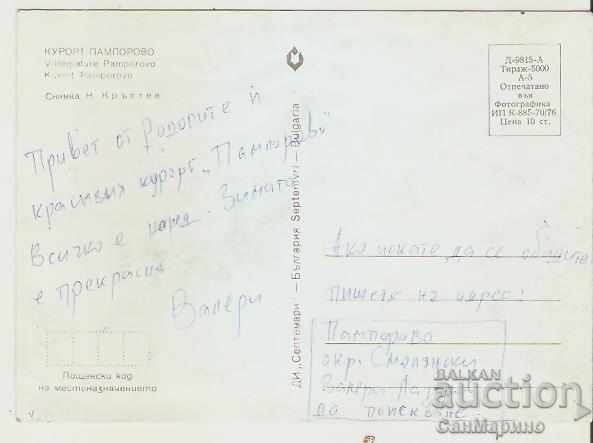 КУРОРТ ПАМПОРОВО
Villegiature Pamporovo
Kurort Pamporovo
Снимка Н. Кръстев
Привет от Родопите и
красивия курорт „Пампорово“
Всичко е наред. Зимата
е прекрасна
Валери
Пощенски код
на местоназначението
ДИ „Септември“ — България Septemvri — Bulgaria
Д-9815-А
Тираж-5000
А-5
Отпечатано
във
Фотографика
ИП К-885-70/76
Цена 10 ст.
Ако искате да се обадите
пишете на адрес:
Пампорово
окр. Смолянски
Валери
до поискване
BALKAN
auction
СанМарино